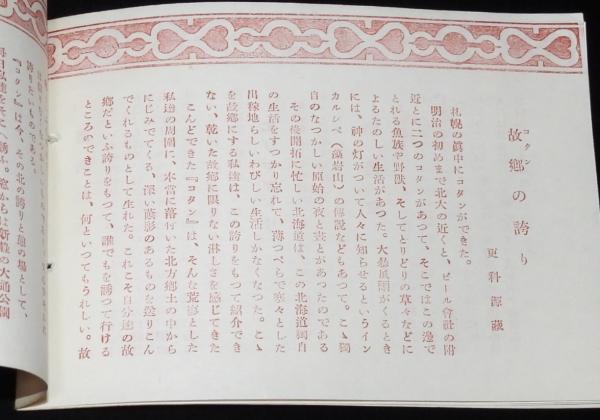 故郷の誇り
コタン
更科源藏
札幌の眞中にコタンができた。
明治の初めまで北大の近くと、ビール會社の附
近とに二つのコタンがあつて、そこではこの邊で
とれる魚族や野獸、そしてとりどりの草々などに
よるたのしい生活があつた。大暴風雨がくるとき
には、神の灯がついて人々に知らせるというイン
カルシペ(藻岩山)の傳説などもあつて。こゝ獨
自のなつかしい原始の夜と晝とがあつたのである
その後開拓に忙しい北海道は、この北海道獨自
の生活をすつかり忘れて、薄つぺらで寒々とした
出稼地らしいわびしい生活しかなくなつた。こゝ
を故郷にする私達は、この誇りをもつて紹介でき
ない、乾いた故郷に限りない淋しさを感じてきた
こんどできた『コタン』は、そんな荒寥とした
私達の周圍に、本當に落付いた北方郷土の中から
にじみでてくる、深い蔭影のあるものを送りこん
でくれるものとして生れた。これこそ自分達の故
郷だといふ誇りをもつて、誰でも誘つて行ける
ところのできことは、何といつてもうれしい。故
誇りたいものである。
『コタン』は今、その北の誇りと憩の場として、
毎日私達を
誘ふ。窓からは新裝の大通公園